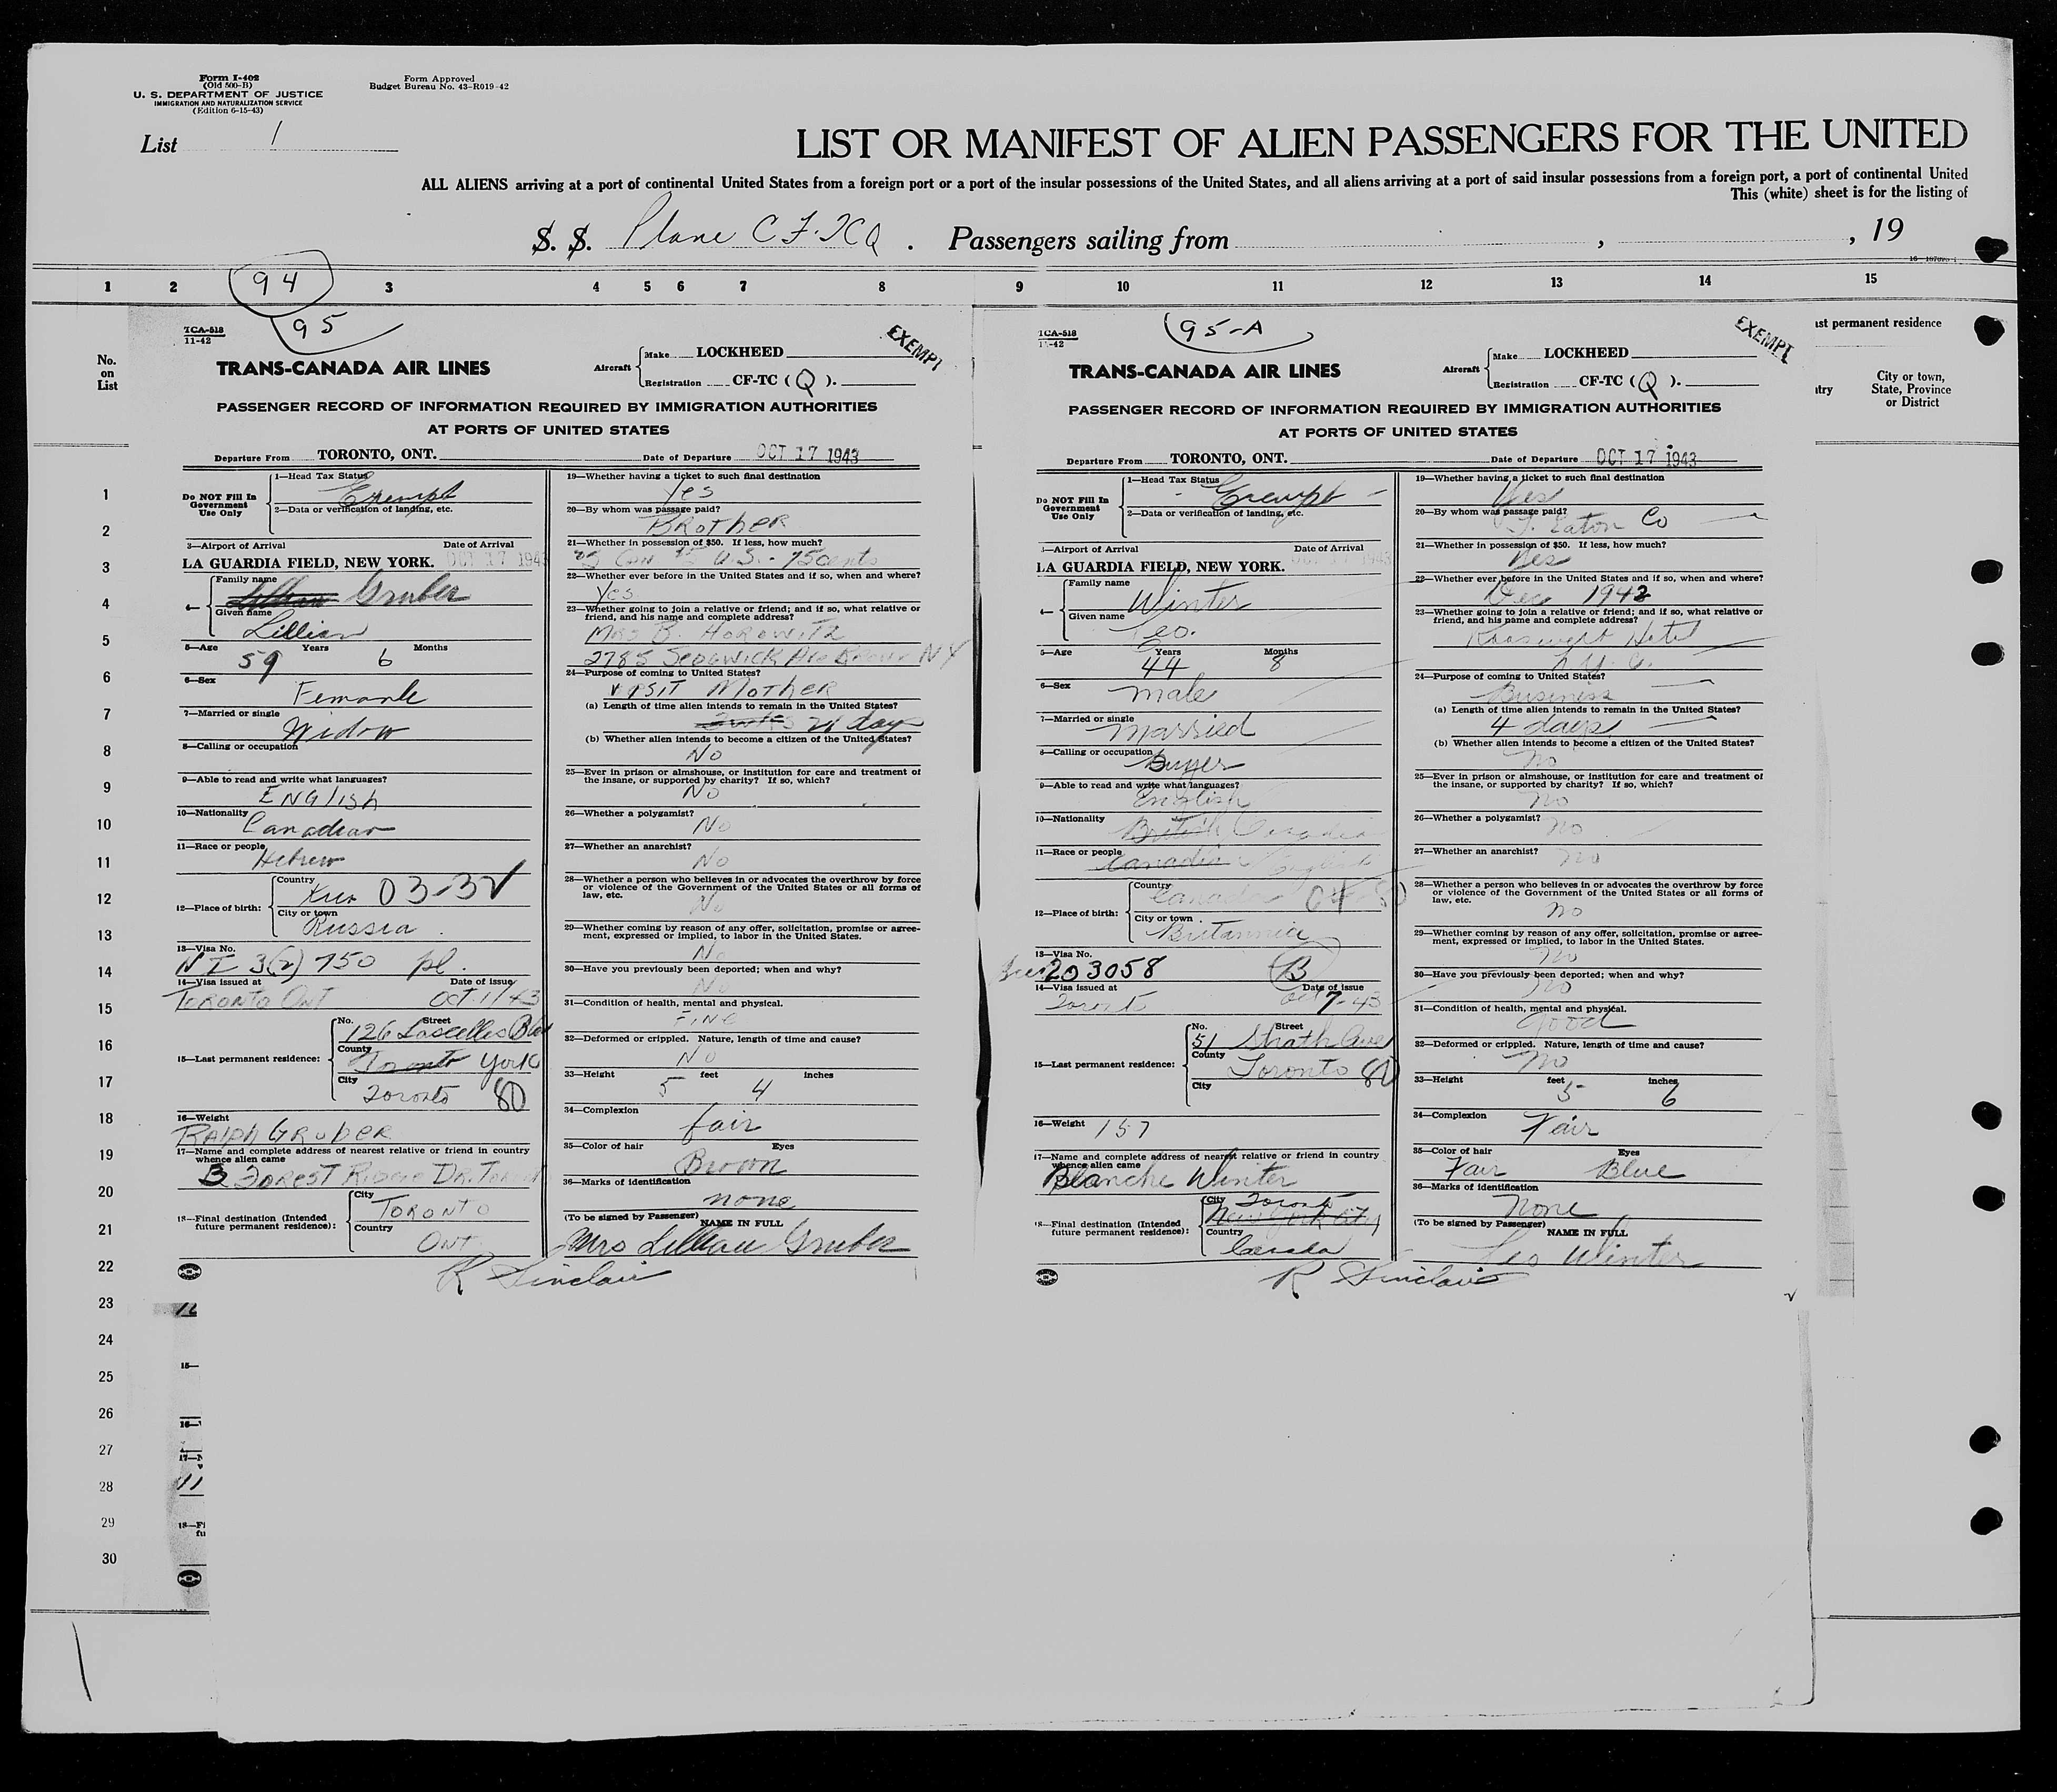 Form I-402
(Old 500-B)
U. S. DEPARTMENT OF JUSTICE
IMMIGRATION AND NATURALIZATION SERVICE
(Edition 6-15-43)
Form Approved
Budget Bureau No. 43-R019-42
List 1
LIST OR MANIFEST OF ALIEN PASSENGERS FOR THE UNITED
ALL ALIENS arriving at a port of continental United States from a foreign port or a port of the insular possessions of the United States, and all aliens arriving at a port of said insular possessions from a foreign port, a port of continental United
This (white) sheet is for the listing of
S. S. Plane CF-TCQ . Passengers sailing from , , 19
1 2 3 4 5 6 7 8 9 10 11 12 13 14 15
94
No.
on
List
1
2
3
4
5
6
7
8
9
10
11
12
13
14
15
16
17
18
19
20
21
22
23
24
25
26
27
28
29
30
TCA-518
11-42
95
EXEMPT
TRANS-CANADA AIR LINES
Aircraft
Make LOCKHEED
Registration CF-TC (Q).
PASSENGER RECORD OF INFORMATION REQUIRED BY IMMIGRATION AUTHORITIES
AT PORTS OF UNITED STATES
Departure From TORONTO, ONT. Date of Departure OCT 17 1943
Do NOT Fill In
Government
Use Only
1—Head Tax Status
Exempt
2—Data or verification of landing, etc.
3—Airport of Arrival Date of Arrival
LA GUARDIA FIELD, NEW YORK. OCT 17 1943
4—
Family name
Lillian Gruber
Given name
Lillian
5—Age Years Months
59 6
6—Sex
Femanle
7—Married or single
Widow
8—Calling or occupation
9—Able to read and write what languages?
ENGlish
10—Nationality
Canadian
11—Race or people
Hebrew
12—Place of birth:
Country
03-32
City or town
Russia
13—Visa No.
NI 3(2) 750 pl.
14—Visa issued at Date of issue
TORONTO Ont Oct 11/43
15—Last permanent residence:
No. Street
126 Lascelles Blvd
County
Toronto York
City
Toronto 80
16—Weight
RALPH GRUBER
17—Name and complete address of nearest relative or friend in country
whence alien came
3 FOREST RIDGE DR. Toront
18—Final destination (Intended
future permanent residence):
City
TORONTO
Country
Ont
19—Whether having a ticket to such final destination
Yes
20—By whom was passage paid?
BRothER
21—Whether in possession of $50. If less, how much?
U.S. - 75cents
22—Whether ever before in the United States and if so, when and where?
Yes
23—Whether going to join a relative or friend; and if so, what relative or
friend, and his name and complete address?
Mrs B. HOROWITZ
2785 SEDGWICK Ave Bronx NY
24—Purpose of coming to United States?
VISIT MOTHER
(a) Length of time alien intends to remain in the United States?
21 day
(b) Whether alien intends to become a citizen of the United States?
No
25—Ever in prison or almshouse, or institution for care and treatment of
the insane, or supported by charity? If so, which?
No
26—Whether a polygamist?
No
27—Whether an anarchist?
No
28—Whether a person who believes in or advocates the overthrow by force
or violence of the Government of the United States or all forms of
law, etc.
No
29—Whether coming by reason of any offer, solicitation, promise or agree-
ment, expressed or implied, to labor in the United States.
No
30—Have you previously been deported; when and why?
No
31—Condition of health, mental and physical.
FINE
32—Deformed or crippled. Nature, length of time and cause?
No
33—Height feet inches
5 4
34—Complexion
fair
35—Color of hair Eyes
Brown
36—Marks of identification
none
(To be signed by Passenger) NAME IN FULL
Mrs Lillian Gruber
R Sinclair
TCA-518
11-42
95-A
EXEMPT
TRANS-CANADA AIR LINES
Aircraft
Make LOCKHEED
Registration CF-TC (Q).
PASSENGER RECORD OF INFORMATION REQUIRED BY IMMIGRATION AUTHORITIES
AT PORTS OF UNITED STATES
Departure From TORONTO, ONT. Date of Departure OCT 17 1943
Do NOT Fill In
Government
Use Only
1—Head Tax Status
Exempt
2—Data or verification of landing, etc.
3—Airport of Arrival Date of Arrival
LA GUARDIA FIELD, NEW YORK.
4—
Family name
Winter
Given name
Leo.
5—Age Years Months
44 8
6—Sex
male
7—Married or single
Married
8—Calling or occupation
Buyer
9—Able to read and write what languages?
English
10—Nationality
British Canadian
11—Race or people
Canadian English
12—Place of birth:
Country
Canada
City or town
Britannia
13—Visa No.
203058 B
14—Visa issued at Date of issue
Toronto Oct 7-43
15—Last permanent residence:
No. Street
51 Strath Ave
County
Toronto 80
City
16—Weight 157
17—Name and complete address of nearest relative or friend in country
whence alien came
Blanche Winter
18—Final destination (Intended
future permanent residence):
City Toronto
New York City
Country
Canada
19—Whether having a ticket to such final destination
Yes
20—By whom was passage paid?
T. Eaton Co
21—Whether in possession of $50. If less, how much?
Yes
22—Whether ever before in the United States and if so, when and where?
Dec 1942
23—Whether going to join a relative or friend; and if so, what relative or
friend, and his name and complete address?
Roosevelt Hotel
N.Y.C.
24—Purpose of coming to United States?
Business
(a) Length of time alien intends to remain in the United States?
4 days
(b) Whether alien intends to become a citizen of the United States?
No
25—Ever in prison or almshouse, or institution for care and treatment of
the insane, or supported by charity? If so, which?
no
26—Whether a polygamist?
no
27—Whether an anarchist?
no
28—Whether a person who believes in or advocates the overthrow by force
or violence of the Government of the United States or all forms of
law, etc.
no
29—Whether coming by reason of any offer, solicitation, promise or agree-
ment, expressed or implied, to labor in the United States.
no
30—Have you previously been deported; when and why?
no
31—Condition of health, mental and physical.
Good
32—Deformed or crippled. Nature, length of time and cause?
no
33—Height feet inches
5 6
34—Complexion
Fair
35—Color of hair Eyes
Fair Blue
36—Marks of identification
None
(To be signed by Passenger) NAME IN FULL
Leo Winter
R Sinclair
ast permanent residence
City or town,
State, Province
or District